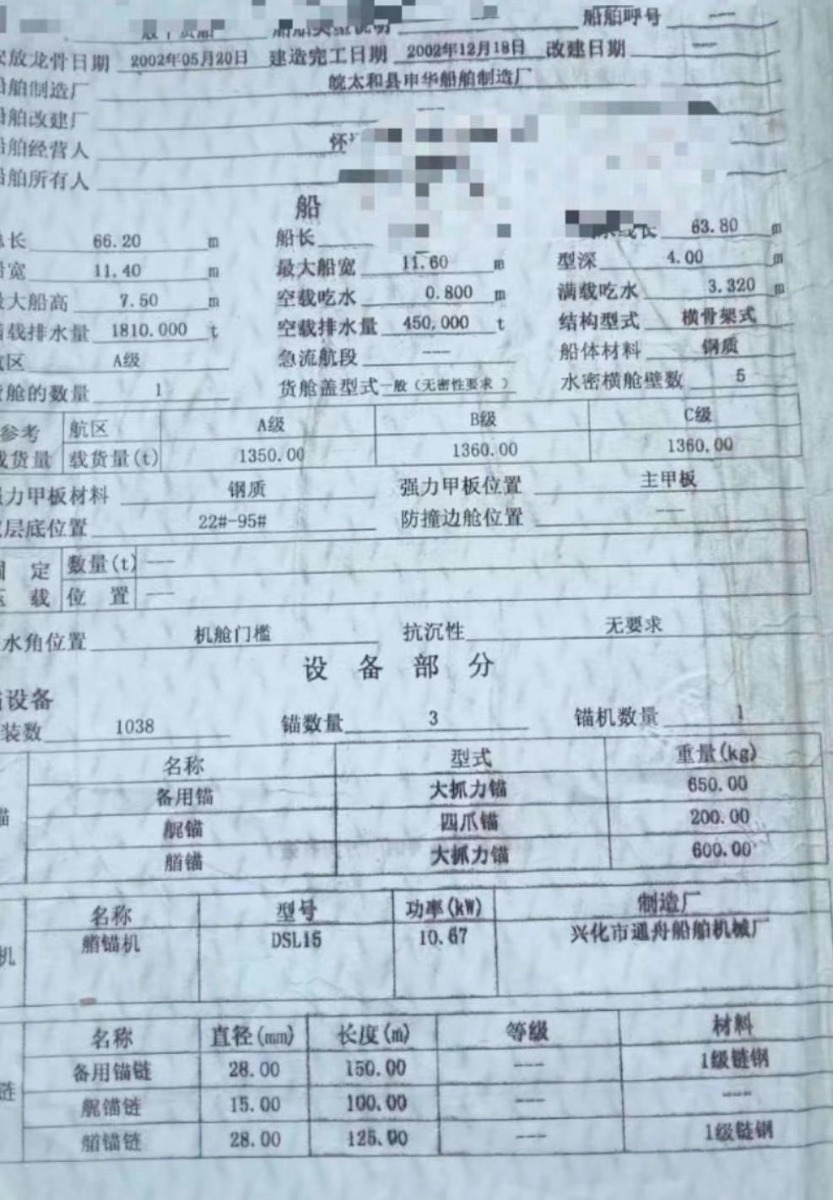 船舶呼号 ---
放龙骨日期 2002年05月20日 建造完工日期 2002年12月18日 改建日期 ---
舶制造厂 皖太和县申华船舶制造厂
舶改建厂 ---
舶经营人 怀
舶所有人
船
长 66.20 m 船长 63.80 m
宽 11.40 m 最大船宽 11.60 m 型深 4.00 m
最大船高 7.50 m 空载吃水 0.800 m 满载吃水 3.320 m
载排水量 1810.000 t 空载排水量 450.000 t 结构型式 横骨架式
区 A级 急流航段 --- 船体材料 钢质
货舱的数量 1 货舱盖型式 一般（无密性要求 ） 水密横舱壁数 5
参考 航区 A级 B级 C级
载货量 载货量(t) 1350.00 1360.00 1360.00
强力甲板材料 钢质 强力甲板位置 主甲板
层底位置 22#-95# 防撞边舱位置 ---
固 定 数量(t) ---
压 载 位 置 ---
水角位置 机舱门槛 抗沉性 无要求
设 备 部 分
设备
装数 1038 锚数量 3 锚机数量 1
名称 型式 重量(kg)
备用锚 大抓力锚 650.00
锚 艉锚 四爪锚 200.00
艏锚 大抓力锚 600.00
名称 型号 功率(kW) 制造厂
机 艏锚机 DSL15 10.67 兴化市通舟船舶机械厂
名称 直径(mm) 长度(m) 等级 材料
备用锚链 28.00 150.00 --- 1级链钢
链 艉锚链 15.00 100.00 --- ---
艏锚链 28.00 125.00 --- 1级链钢